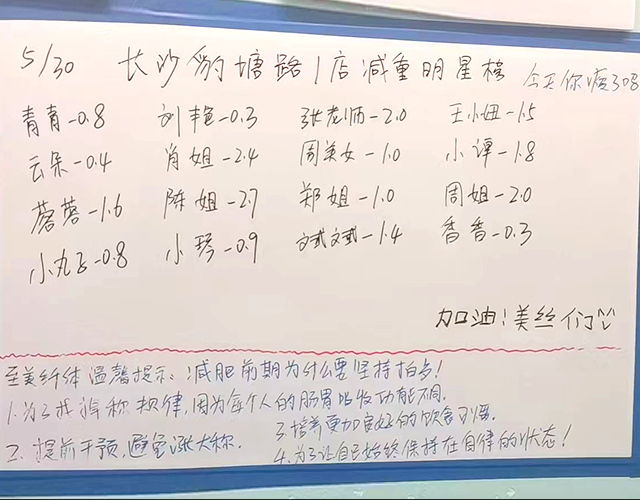 5/30 长沙豹塘路1店减重明星榜 今天你瘦了吗
青青-0.8 刘艳-0.3 张老师-2.0 王小妞-1.5
云朵-0.4 肖姐-2.4 周美女-1.0 小谭-1.8
蓉蓉-1.6 陈姐-2.7 郑姐-1.0 周姐-2.0
小丸子-0.8 小琴-0.9 斌斌-1.4 香香-0.3
加油！美丝们
至美纤体温馨提示：减肥前期为什么要坚持拍多！
1.为了找掉称规律，因为每个人的肠胃吸收功能不同.
2.提前干预，避免涨大称.
3.培养更加良好的饮食习惯.
4.为了让自己始终保持在自律的状态！